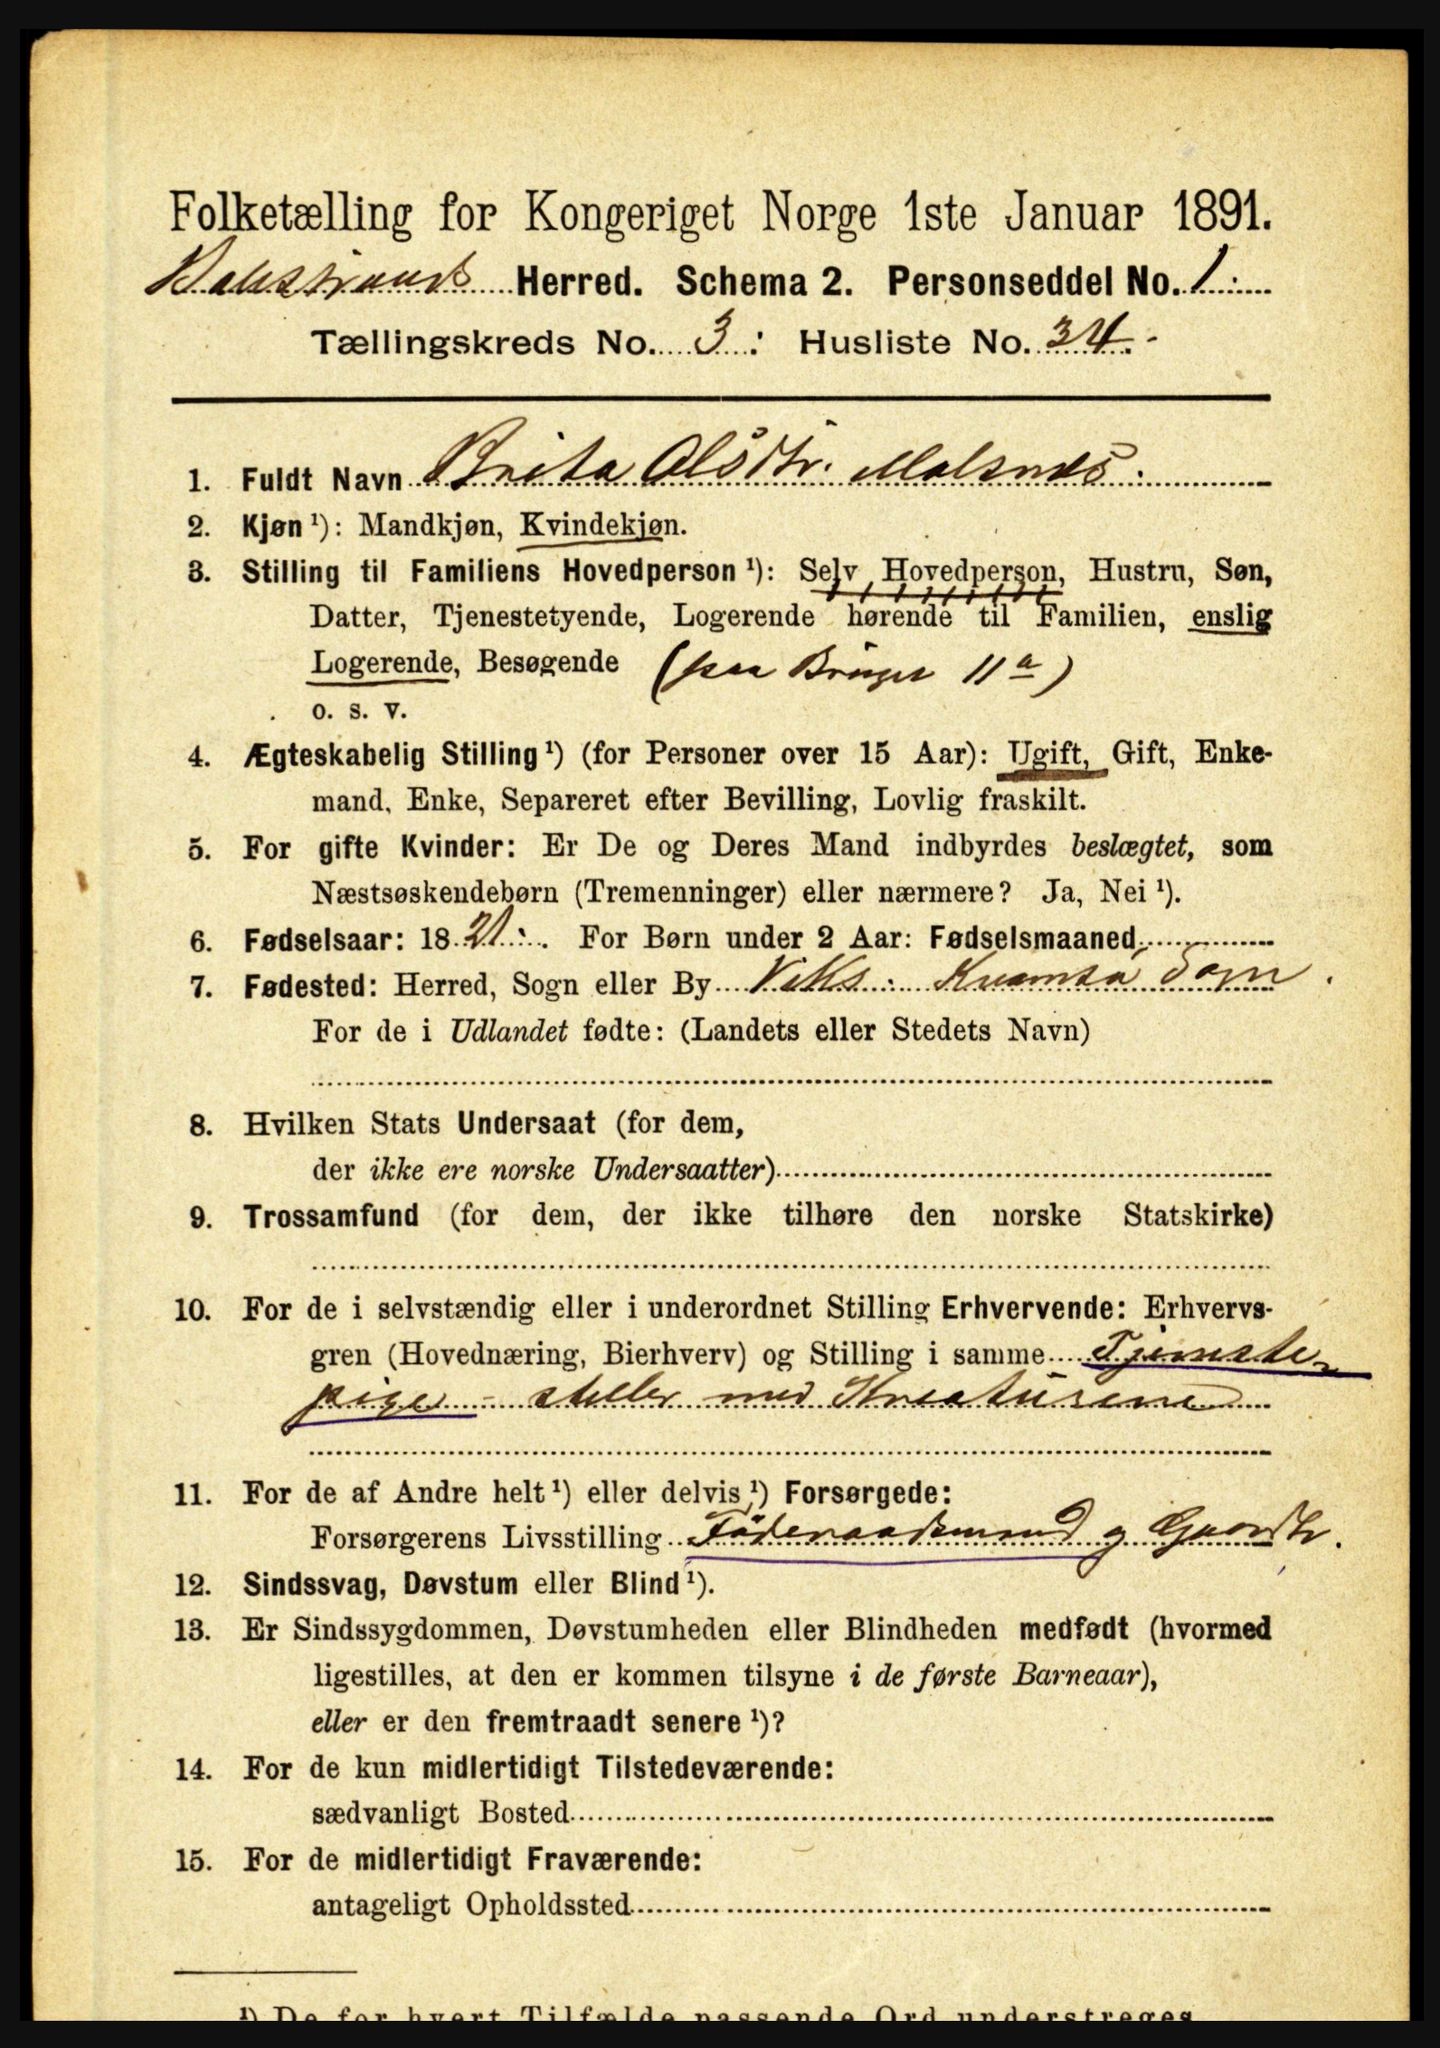 Folketælling for Kongeriget Norge 1ste Januar 1891.
Balestrands Herred. Schema 2. Personseddel No. 1.
Tællingskreds No. 3. Husliste No. 34.
1. Fuldt Navn Brita Olsdtr. Malsnes.
2. Kjøn ¹): Mandkjøn, Kvindekjøn.
3. Stilling til Familiens Hovedperson ¹): Selv Hovedperson, Hustru, Søn,
Datter, Tjenestetyende, Logerende hørende til Familien, enslig
Logerende, Besøgende (paa Bruget 11a)
o. s. v.
4. Ægteskabelig Stilling ¹) (for Personer over 15 Aar): Ugift, Gift, Enke-
mand, Enke, Separeret efter Bevilling, Lovlig fraskilt.
5. For gifte Kvinder: Er De og Deres Mand indbyrdes beslægtet, som
Næstsøskendebørn (Tremenninger) eller nærmere? Ja, Nei ¹).
6. Fødselsaar: 1821. For Børn under 2 Aar: Fødselsmaaned
7. Fødested: Herred, Sogn eller By Viks. Kvamsø Sogn.
For de i Udlandet fødte: (Landets eller Stedets Navn)
8. Hvilken Stats Undersaat (for dem,
der ikke ere norske Undersaatter)
9. Trossamfund (for dem, der ikke tilhøre den norske Statskirke)
10. For de i selvstændig eller i underordnet Stilling Erhvervende: Erhvervs-
gren (Hovednæring, Bierhverv) og Stilling i samme Tjeneste-
pige - steller med Kreaturene
11. For de af Andre helt ¹) eller delvis ¹) Forsørgede:
Forsørgerens Livsstilling Föderaadsmand og Gaardbr.
12. Sindssvag, Døvstum eller Blind ¹).
13. Er Sindssygdommen, Døvstumheden eller Blindheden medfødt (hvormed
ligestilles, at den er kommen tilsyne i de første Barneaar),
eller er den fremtraadt senere ¹)?
14. For de kun midlertidigt Tilstedeværende:
sædvanligt Bosted
15. For de midlertidigt Fraværende:
antageligt Opholdssted
¹) De for hvert Tilfælde passende Ord understreges